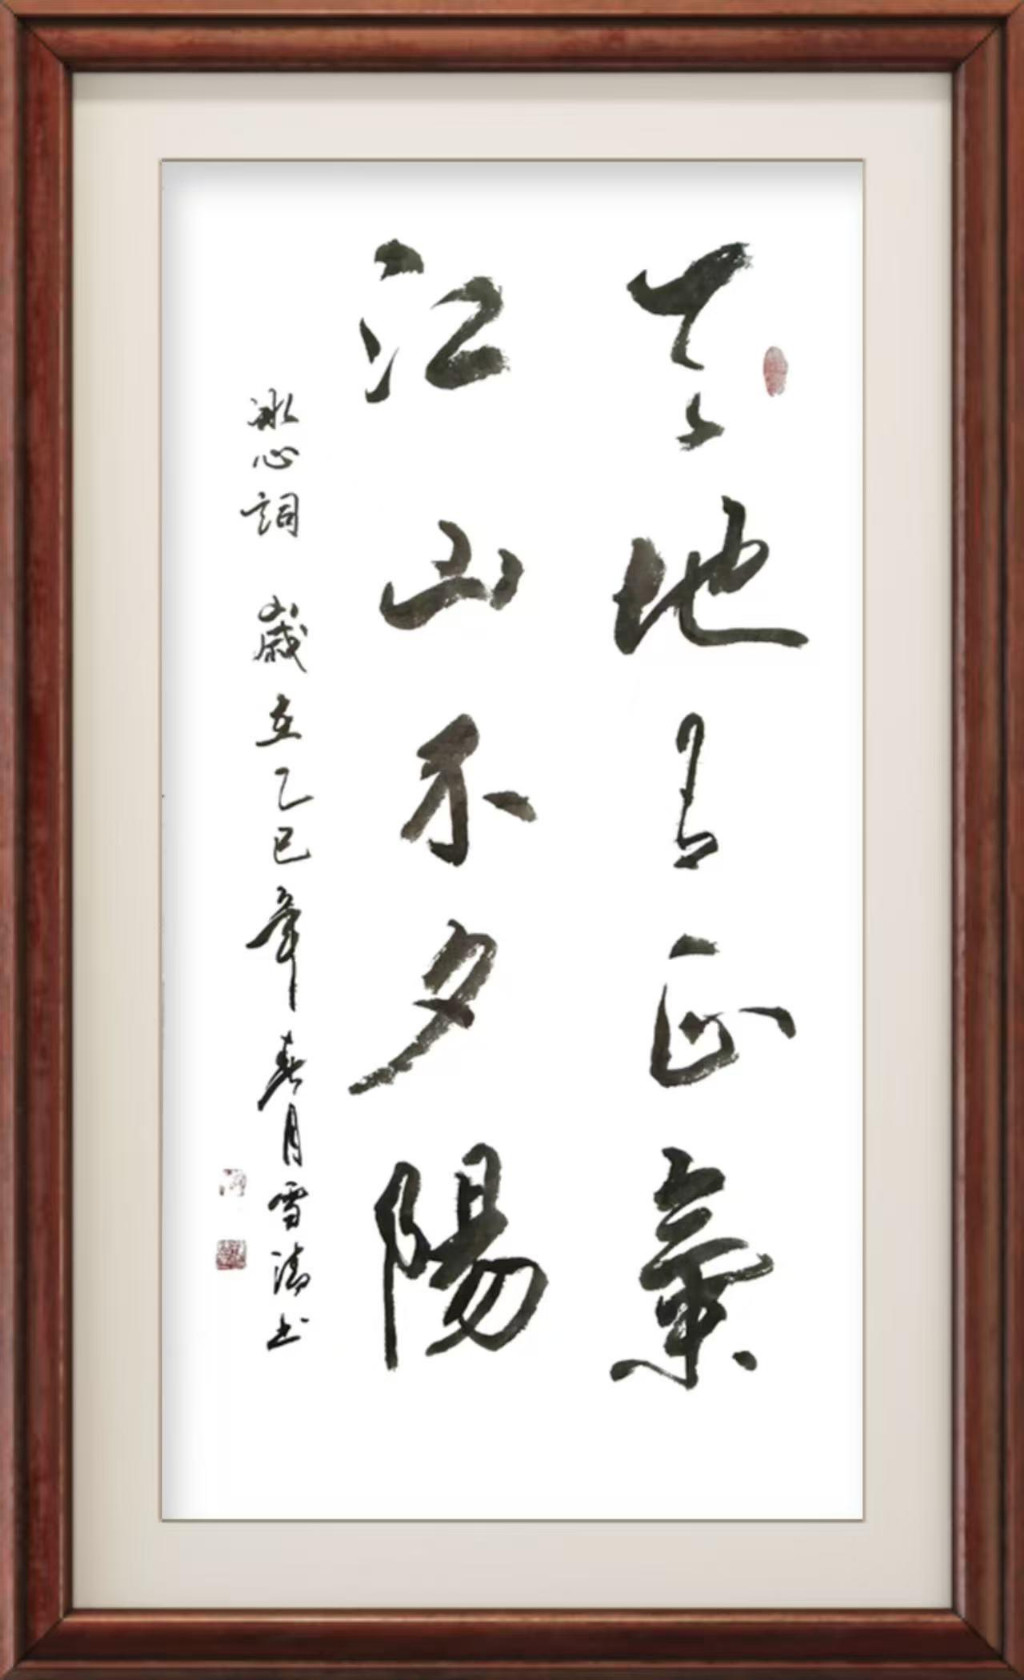 天地有正氣
江山不夕陽
冰心詞 歲在乙巳年春月雪濤书